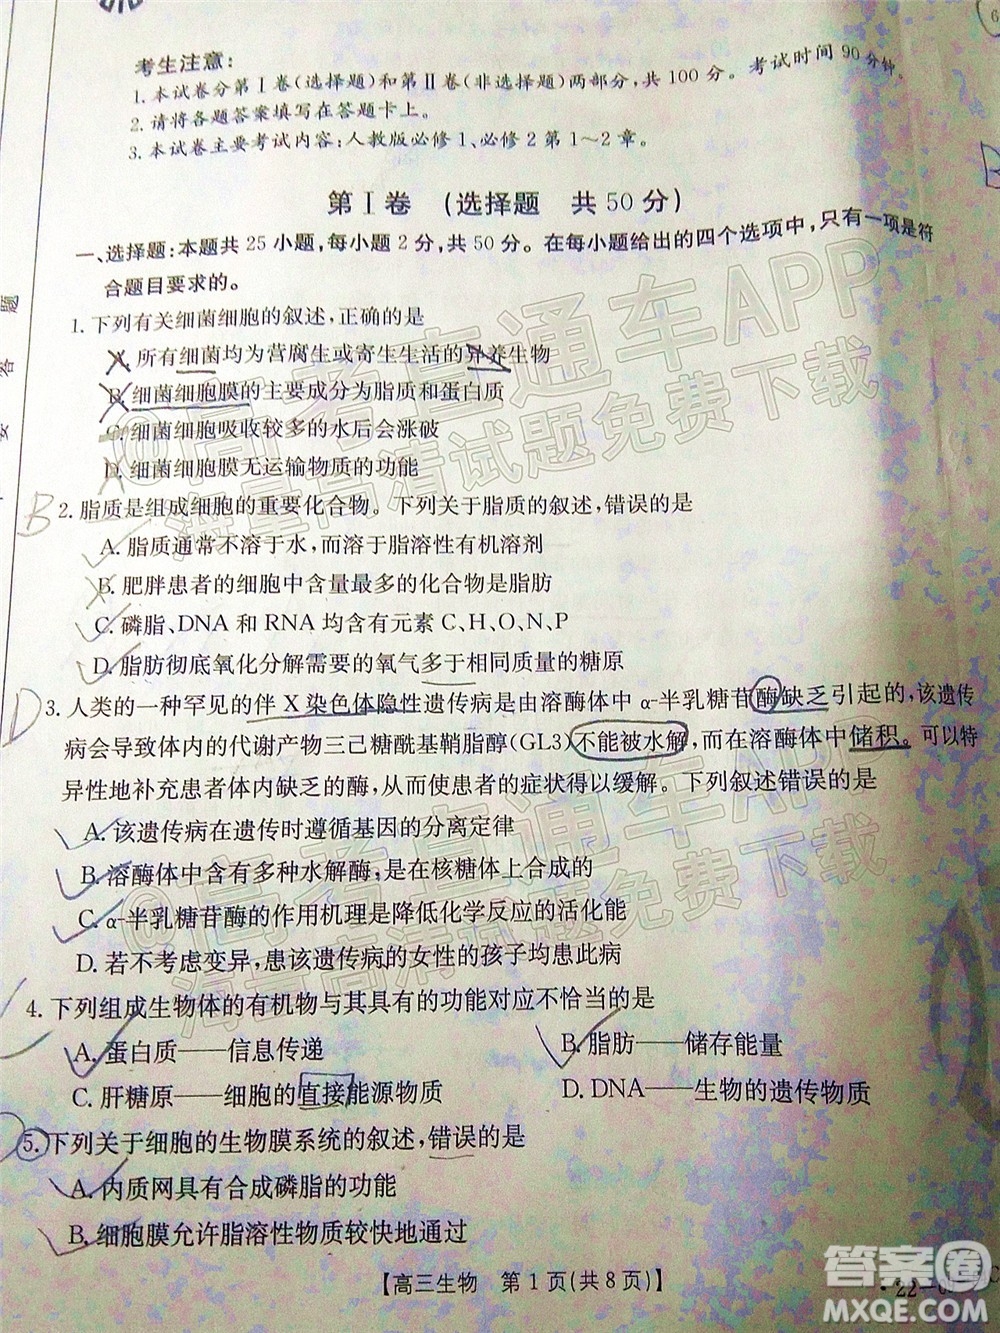 考生注意：
1. 本试卷分第Ⅰ卷(选择题)和第Ⅱ卷(非选择题)两部分,共100分。考试时间90分钟。
2. 请将各题答案填写在答题卡上。
3. 本试卷主要考试内容：人教版必修1、必修2第1～2章。
第Ⅰ卷 (选择题 共50分)
一、选择题：本题共25小题,每小题2分,共50分。在每小题给出的四个选项中,只有一项是符
合题目要求的。
1. 下列有关细菌细胞的叙述,正确的是
A. 所有细菌均为营腐生或寄生生活的异养生物
B. 细菌细胞膜的主要成分为脂质和蛋白质
C. 细菌细胞吸收较多的水后会涨破
D. 细菌细胞膜无运输物质的功能
B
2. 脂质是组成细胞的重要化合物。下列关于脂质的叙述,错误的是
A. 脂质通常不溶于水,而溶于脂溶性有机溶剂
B. 肥胖患者的细胞中含量最多的化合物是脂肪
C. 磷脂、DNA和RNA均含有元素C、H、O、N、P
D. 脂肪彻底氧化分解需要的氧气多于相同质量的糖原
D
3. 人类的一种罕见的伴X染色体隐性遗传病是由溶酶体中α-半乳糖苷酶缺乏引起的,该遗传
病会导致体内的代谢产物三己糖酰基鞘脂醇(GL3)不能被水解,而在溶酶体中储积。可以特
异性地补充患者体内缺乏的酶,从而使患者的症状得以缓解。下列叙述错误的是
A. 该遗传病在遗传时遵循基因的分离定律
B. 溶酶体中含有多种水解酶,酶是在核糖体上合成的
C. α-半乳糖苷酶的作用机理是降低化学反应的活化能
D. 若不考虑变异,患该遗传病的女性的孩子均患病
4. 下列组成生物体的有机物与其具有的功能对应不恰当的是
A. 蛋白质——信息传递
B. 脂肪——储存能量
C. 肝糖原——细胞的直接能源物质
D. DNA——生物的遗传物质
5. 下列关于细胞的生物膜系统的叙述,错误的是
A. 内质网具有合成磷脂的功能
B. 细胞膜允许脂溶性物质较快地通过
【高三生物 第1页(共8页)】
·22-0
题
答
要
@高考直通车APP
海量高清试题免费下载
@高考直通车APP
海量高清试题免费下载
答案圈
MXQE.COM